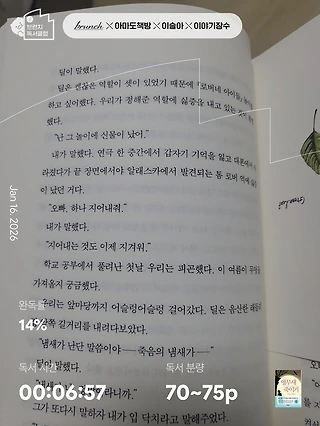 브런치
독서클럽
brunch × 아미도책방 × 이슬아 × 이야기장수
딜이 말했다.
딜은 괜찮은 역할이 셋이 있었기 때문에 『로버네 아이들』 놀이
하고 싶어했다. 우리가 정해준 역할에 싫증을 내고 있는 것이
했다.
"난 그 놀이에 신물이 났어."
내가 말했다. 연극 한 중간에서 갑자기 기억을 잃고 대본에서
라졌다가 끝 장면에서야 알래스카에서 발견되는 톰 로버 역에
이 났던 거다.
"오빠, 하나 지어내줘."
내가 말했다.
"지어내는 것도 이제 지겨워."
학교 공부에서 풀려난 첫날 우리는 피곤했다. 이 여름이 무엇을
가져올지 궁금했다.
우리는 앞마당까지 어슬렁어슬렁 걸어갔다. 딜은 음산한 래들리
길거리를 내려다보았다.
"냄새가 난단 말씀이야 — 죽음의 냄새가 —"
딜이 말했다.
그가 또다시 말하자 내가 입 닥치라고 말해주었다.
Jan 16, 2026
완독률
14%
독서 시간
00:06:57
독서 분량
70~75p
앵무새
죽이기